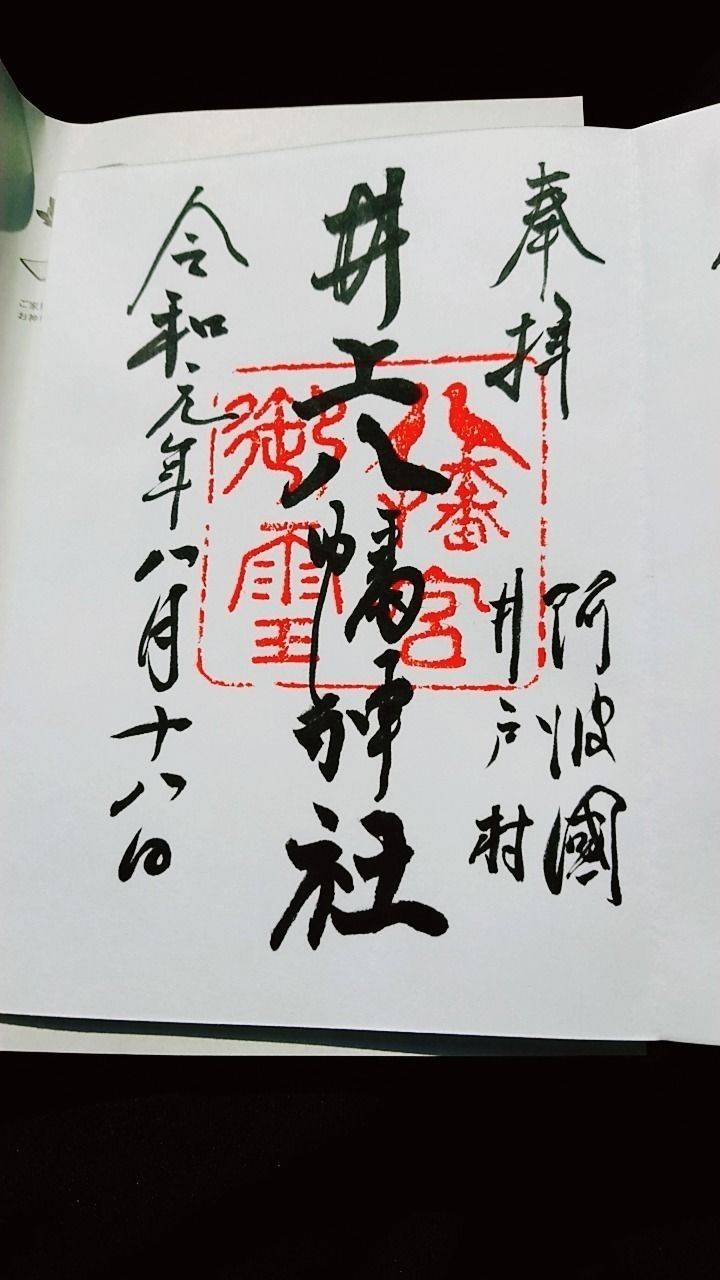 奉拝
阿波國
井戸村
井上八幡神社
令和元年八月十八日
八幡宮
御